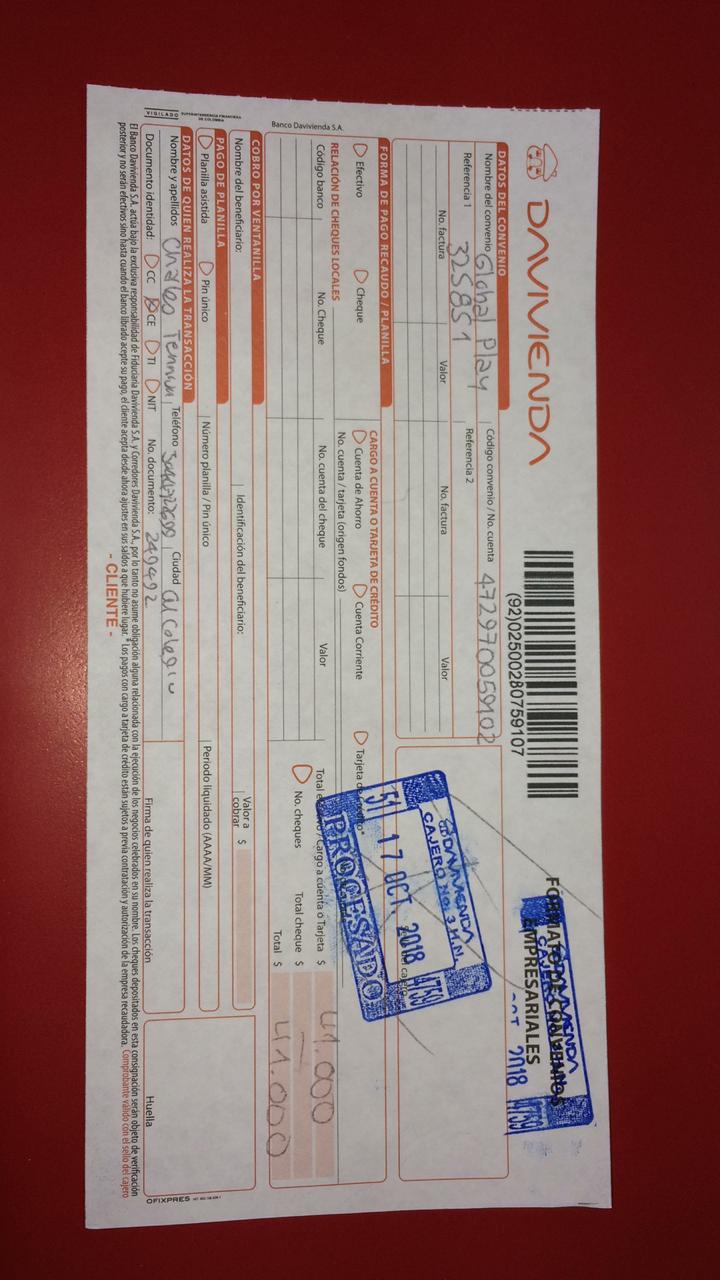 DAVIVIENDA
(92)02500280759107
FORMATO DE CONVENIOS
EMPRESARIALES
OCT 2018 4759
DATOS DEL CONVENIO
Nombre del convenio Global Play
Código convenio / No. cuenta 472970059102
Referencia 1 325851
Referencia 2
No. factura Valor No. factura Valor
DAVIVIENDA
CAJERO No. 3 M.N.
51 17 OCT. 2018 4759
PROCESADO
FORMA DE PAGO RECAUDO / PLANILLA
Efectivo Cheque
CARGO A CUENTA O TARJETA DE CRÉDITO
Cuenta de Ahorro Cuenta Corriente Tarjeta de Crédito*
No. cuenta / tarjeta (origen fondos)
RELACIÓN DE CHEQUES LOCALES
Código banco No. Cheque No. cuenta del cheque Valor
Total / Cargo a cuenta o Tarjeta $ 41.000
No. cheques Total cheque $
Total $ 41.000
Banco Davivienda S.A.
COBRO POR VENTANILLA
Nombre del beneficiario: Identificación del beneficiario: Valor a cobrar $
PAGO DE PLANILLA
Planilla asistida Pin único Número planilla / Pin único Periodo liquidado (AAAA/MM)
DATOS DE QUIEN REALIZA LA TRANSACCIÓN
Nombre y apellidos Charles Teléfono Ciudad
Documento identidad: CC CE TI NIT No. documento: 249492
Firma de quien realiza la transacción
Huella
VIGILADO SUPERINTENDENCIA FINANCIERA DE COLOMBIA
El Banco Davivienda S.A. actúa bajo la exclusiva responsabilidad de Fiduciaria Davivienda S.A. y Corredores Davivienda S.A., por lo tanto no asume obligación alguna relacionada con la ejecución de los negocios celebrados en su nombre. Los cheques depositados en esta consignación serán objeto de verificación
posterior y no serán efectivos sino hasta cuando el banco librado acepte su pago, el cliente acepta desde ahora ajustes en sus saldos a que hubiere lugar. * Los pagos con cargo a tarjeta de crédito están sujetos a previa contratación y autorización de la empresa recaudadora. Comprobante válido con el sello del cajero
- CLIENTE -
OFIXPRES